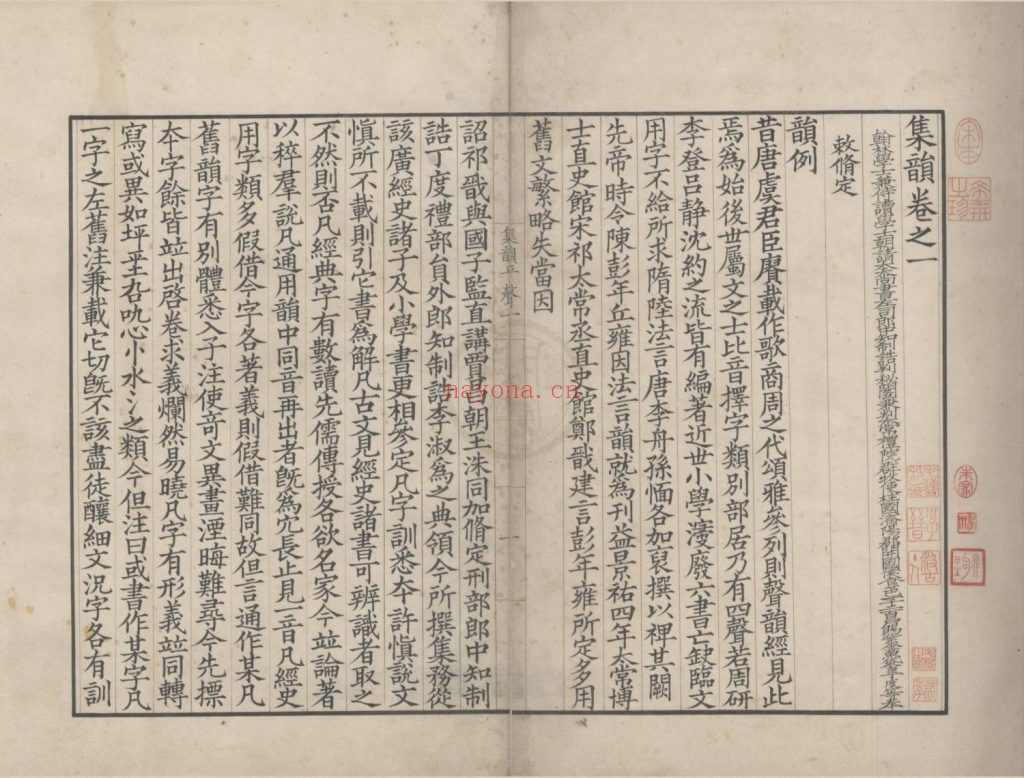 集韻卷之一
翰林學士兼侍讀學士朝請大夫尚書左司郎中知制誥判秘閣兼判太常禮院群牧使柱國濟陽郡開國侯食邑一千二百戶賜紫金魚袋臣丁度等奉
敕脩定
韻例
昔唐虞君臣賡載作歌商周之代頌雅參列則聲韻經見此
焉爲始後世屬文之士比音擇字類別部居乃有四聲若周研
李登呂靜沈約之流皆有編著近世小學寖廢六書亡缺臨文
用字不給所求隋陸法言唐李舟孫愐各加裒撰以裨其闕
先帝時令陳彭年丘雍因法言韻就爲刊益景祐四年太常博
士直史館宋祁太常丞直史館鄭戩建言彭年雍所定多用
舊文繁略失當因
集韻平聲一
一
詔祁戩與國子監直講賈昌朝王洙同加脩定刑部郎中知制
誥丁度禮部員外郎知制誥李淑爲之典領今所撰集務從
該廣經史諸子及小學書更相參定凡字訓悉夲許慎說文
慎所不載則引它書爲解凡古文見經史諸書可辨識者取之
不然則否凡經典字有數讀先儒傳授各欲名家今竝論著
以稡羣說凡通用韻中同音再出者旣爲宂長止見一音凡經史
用字類多假借今字各著義則假借難同故但言通作某凡
舊韻字有別體悉入子注使竒文異畫湮晦難尋今先標
夲字餘皆竝出啓卷求義爛然易曉凡字有形義竝同轉
寫或異如坪𡊞叴叽心忄水氵之類今但注曰或書作某字凡
一字之左舊注兼載它切旣不該盡徒釀細文況字各有訓
nayona.cn